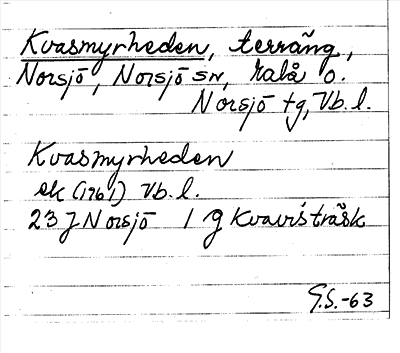 Kvasmyrheden, terräng,
Norsjö, Norsjö sn, Malå o.
Norsjö tg, Vb. l.
Kvasmyrheden
ek (1761) Vb. l.
23 J Norsjö 1 g Kvavisträsk
G.S.-63